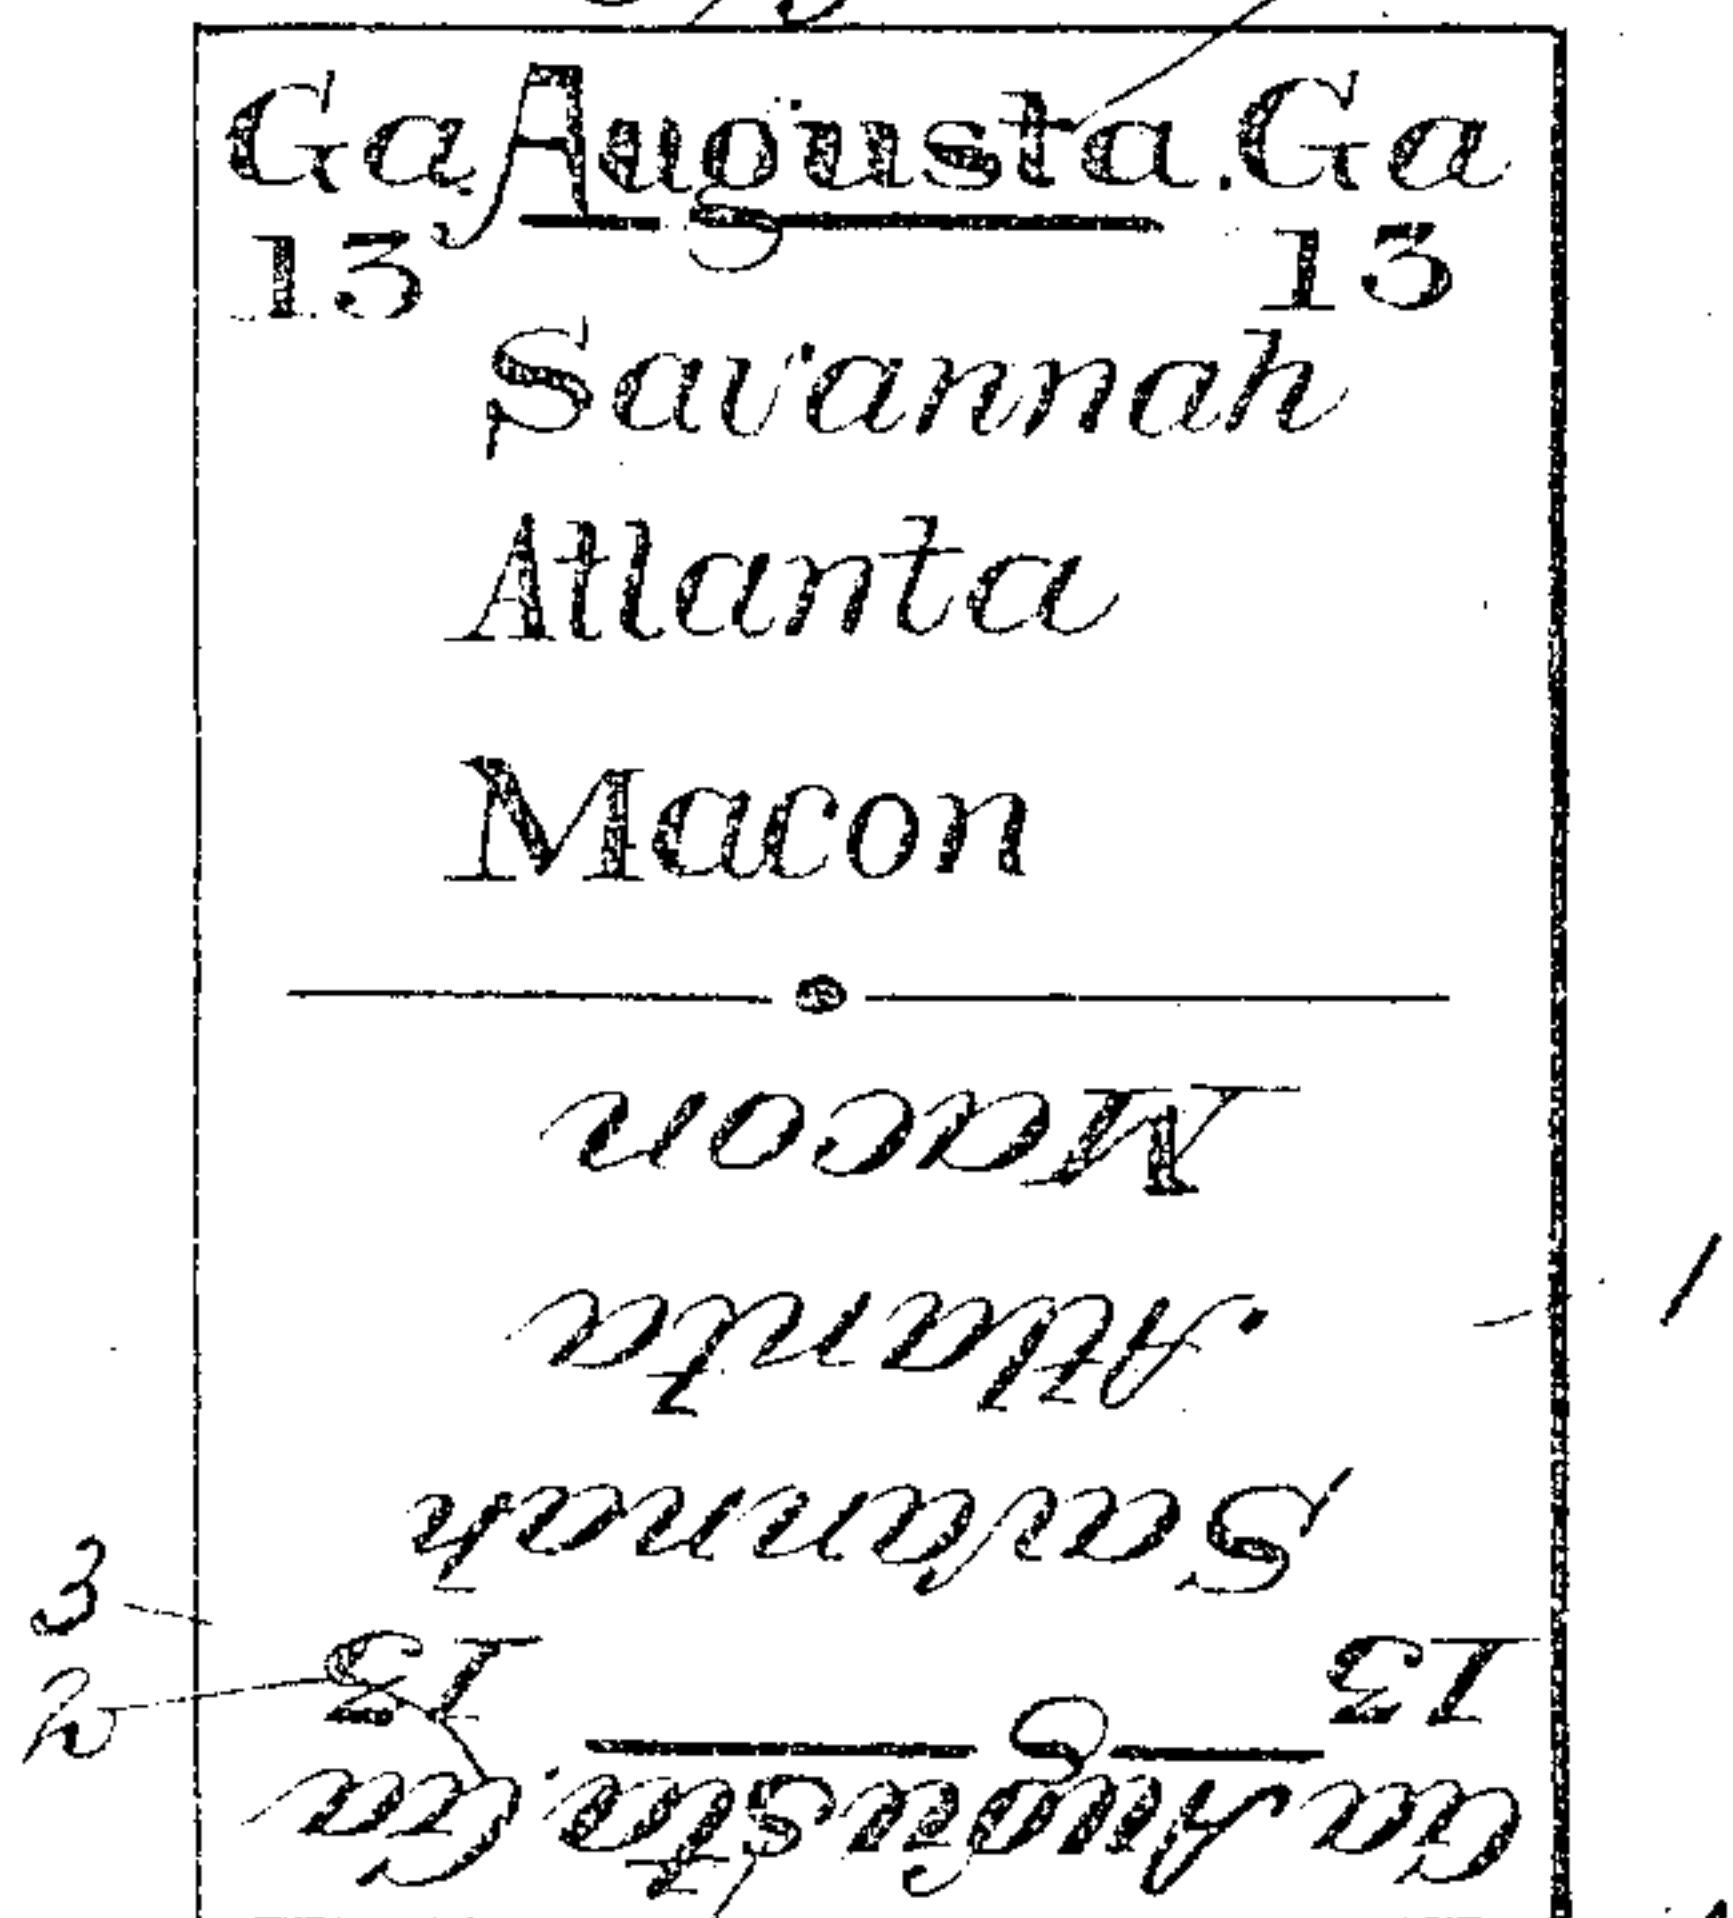 Ga. Augusta. Ga
13 13
Savannah
Atlanta
Macon
Macon
Atlanta
1
Savannah
3
13 13
2
Ga Augusta. Ga